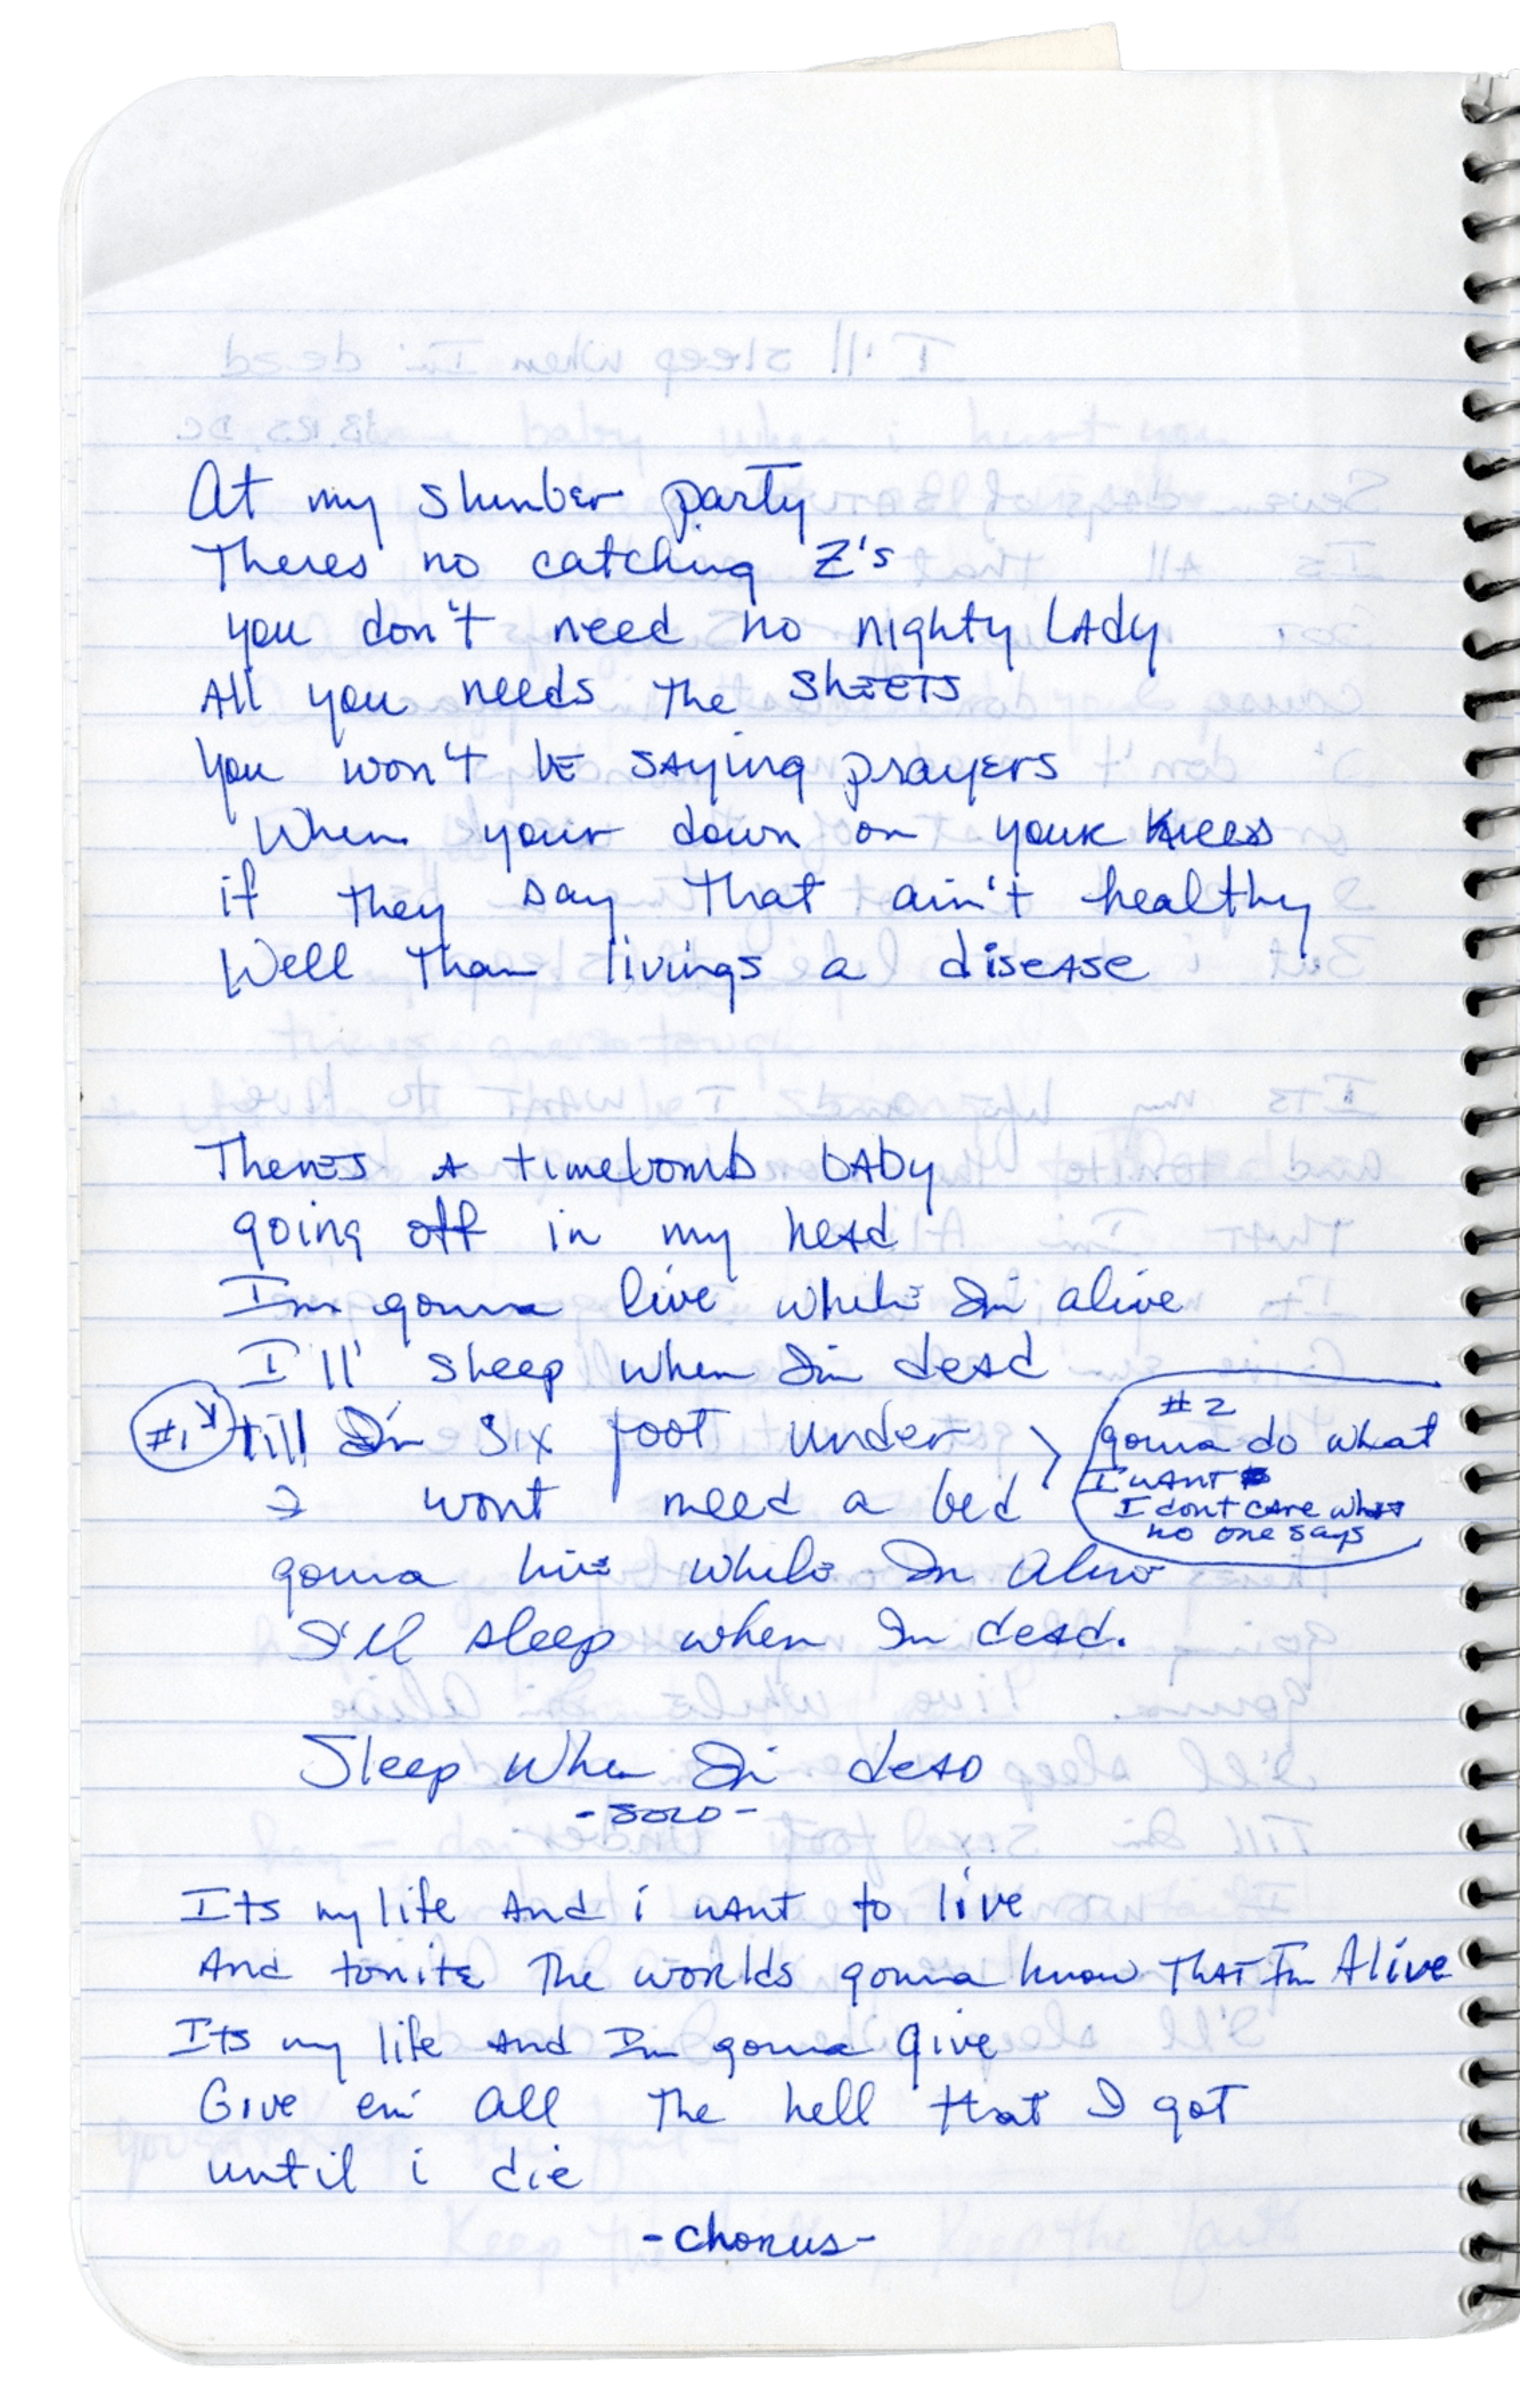 At my slumber party
Theres no catching Z's
you don't need no nighty LAdy
All you needs the ShEETS
you won't bE sAying prayers
When your down on your knees
if they say that ain't healthy
Well than livings a disease
Theres A timebomb bAby
going off in my head
Im gonna live while Im alive
I'll sleep when Im dead
#1 till Im six foot under
I wont need a bed
#2
gonna do what
I want
I dont care what
no one says
gonna live while Im alive
I'll sleep when Im dead.
Sleep When Im dead
-SOLO-
Its my life And i want to live
And tonite The worlds gonna know That Im Alive
Its my life And Im gonna give
Give em' all The hell that I got
until i die
-chorus-